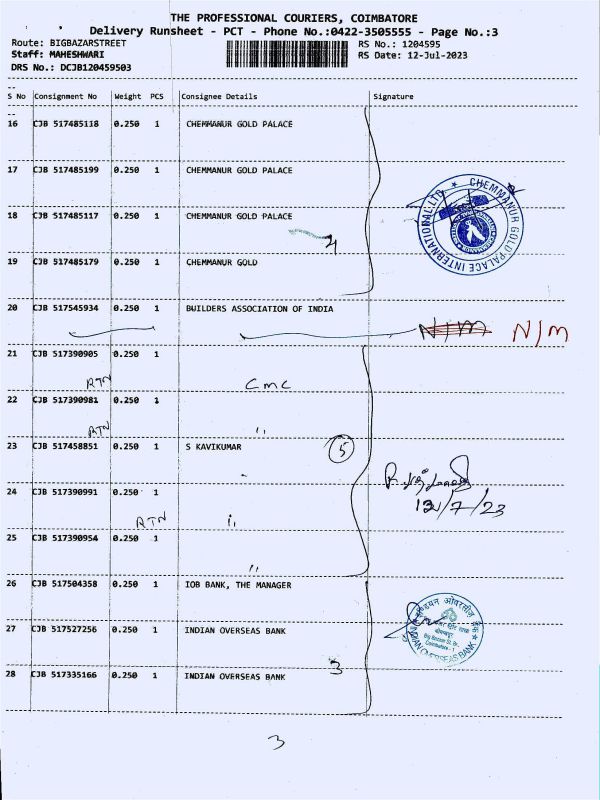 THE PROFESSIONAL COURIERS, COIMBATORE
Delivery Runsheet - PCT - Phone No.:0422-3505555 - Page No.:3
Route: BIGBAZARSTREET RS No.: 1204595
Staff: MAHESHWARI RS Date: 12-Jul-2023
DRS No.: DCJB120459503
S No Consignment No Weight PCS Consignee Details Signature
16 CJB 517485118 0.250 1 CHEMMANUR GOLD PALACE
17 CJB 517485199 0.250 1 CHEMMANUR GOLD PALACE
CHEMMANUR GOLD PALACE INTERNATIONAL LTD
18 CJB 517485117 0.250 1 CHEMMANUR GOLD PALACE
4
19 CJB 517485179 0.250 1 CHEMMANUR GOLD
20 CJB 517545934 0.250 1 BUILDERS ASSOCIATION OF INDIA
N/M N/M
21 CJB 517390905 0.250 1
RTN CMC
22 CJB 517390981 0.250 1
RTN ,,
23 CJB 517458851 0.250 1 S KAVIKUMAR
5
24 CJB 517390991 0.250 1
13/7/23
RTN ,,
25 CJB 517390954 0.250 1
,,
26 CJB 517504358 0.250 1 IOB BANK, THE MANAGER
27 CJB 517527256 0.250 1 INDIAN OVERSEAS BANK
INDIAN OVERSEAS BANK
28 CJB 517335166 0.250 1 INDIAN OVERSEAS BANK
3
3